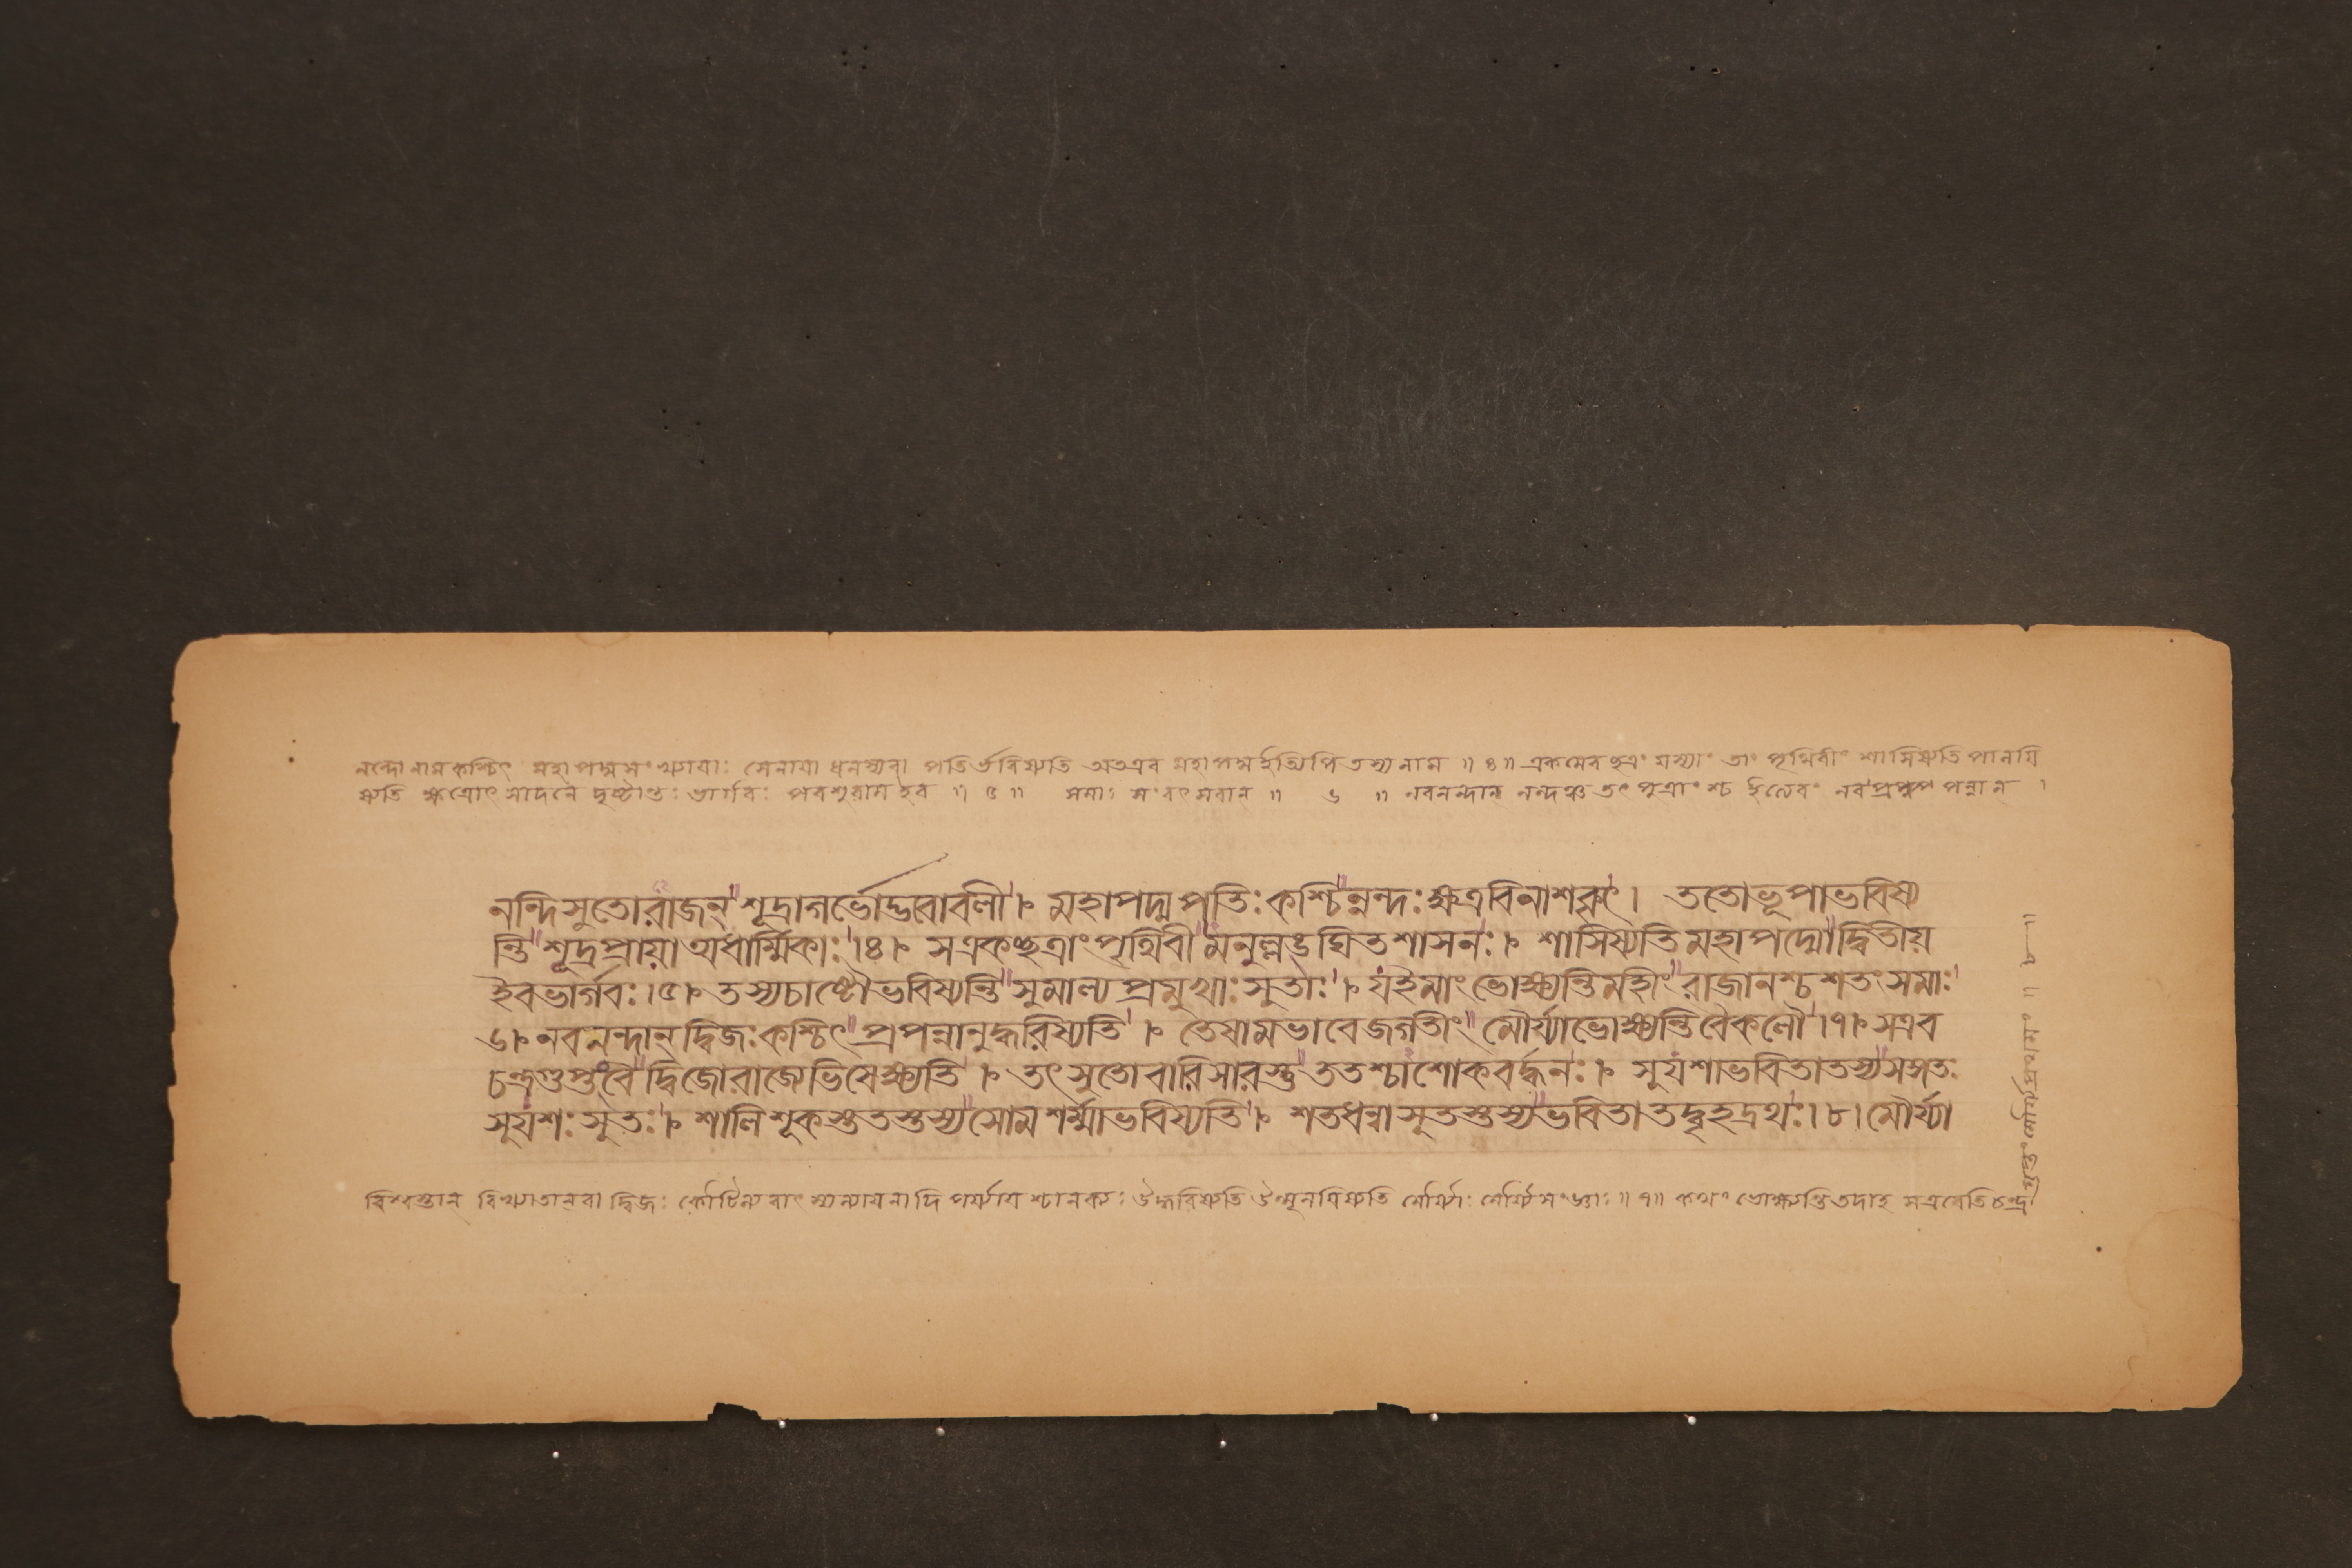 নন্দোনামকশ্চিৎ মহাপদ্মসংখ্যাযাঃ সেনাযা ধনস্যবা পতির্ভবিষ্যতি অতএব মহাপদ্মইত্যপি তস্যনাম ॥ ৪ ॥ একমেবছত্রং যস্যাং তাং পৃথিবীং শাসিষ্যতি পালযি
ষ্যতি ক্ষত্রোৎসাদনে দৃষ্টান্তঃ ভার্গবঃ পরশুরামইব ॥ ৫ ॥ সমাঃ সংবৎসরান্ ॥ ৬ ॥ নবনন্দান্ নন্দঞ্চ তৎ পুত্রাংশ্চ নব প্রপন্নান্ ।
নন্দিসুতোরাজন্ শূদ্রাগর্ভোদ্ভবোবলী । মহাপদ্মপতিঃ কশ্চিন্নন্দঃ ক্ষত্রবিনাশকৃৎ । ততোভূপাভবিষ্য
ন্তি শূদ্রপ্রায়া অধার্ম্মিকাঃ ।৪। সএকচ্ছত্রাং পৃথিবী মনুল্লঙঘিতশাসনঃ । শাসিষ্যতি মহাপদ্মো দ্বিতীয়
ইবভার্গবঃ ।৫। তস্যচাষ্টৌভবিষ্যন্তি সুমাল্যপ্রমুখাঃ সুতাঃ । যইমাং ভোক্ষ্যন্তিমহীং রাজানশ্চ শতং সমাঃ
৬। নবনন্দান্ দ্বিজঃ কশ্চিৎ প্রপন্নানুদ্ধরিষ্যতি । তেষামভাবেজগতীং মৌর্য্যাভোক্ষ্যন্তি বৈকলৌ ।৭। সএব
চন্দ্রগুপ্তংবৈ দ্বিজোরাজ্যেভিষেক্ষ্যতি । তৎ সুতোবারিসারস্তু ততশ্চাশোকবর্দ্ধনঃ । সুযশাভবিতাতস্য সঙ্গতঃ
সুযশঃ সুতঃ । শালিশূকস্ততস্তস্য সোমশর্ম্মাভবিষ্যতি । শতধন্বা সুতস্তস্য ভবিতা তদ্বৃহদ্রথঃ ।৮। মৌর্য্যা
বিশ্বস্তান্ বিখ্যাতান্ বা দ্বিজঃ কৌটিল্য বাৎস্যায়নাদি পর্য্যায শ্চানক্যঃ উদ্ধরিষ্যতি উন্মূলযিষ্যতি মৌর্য্যাঃ মৌর্য্যসংজ্ঞাঃ ॥ ৭॥ কথং ভোক্ষ্যন্তিতদাহ সএবেতি চন্দ্র
গুপ্তং ॥ ৮ ॥